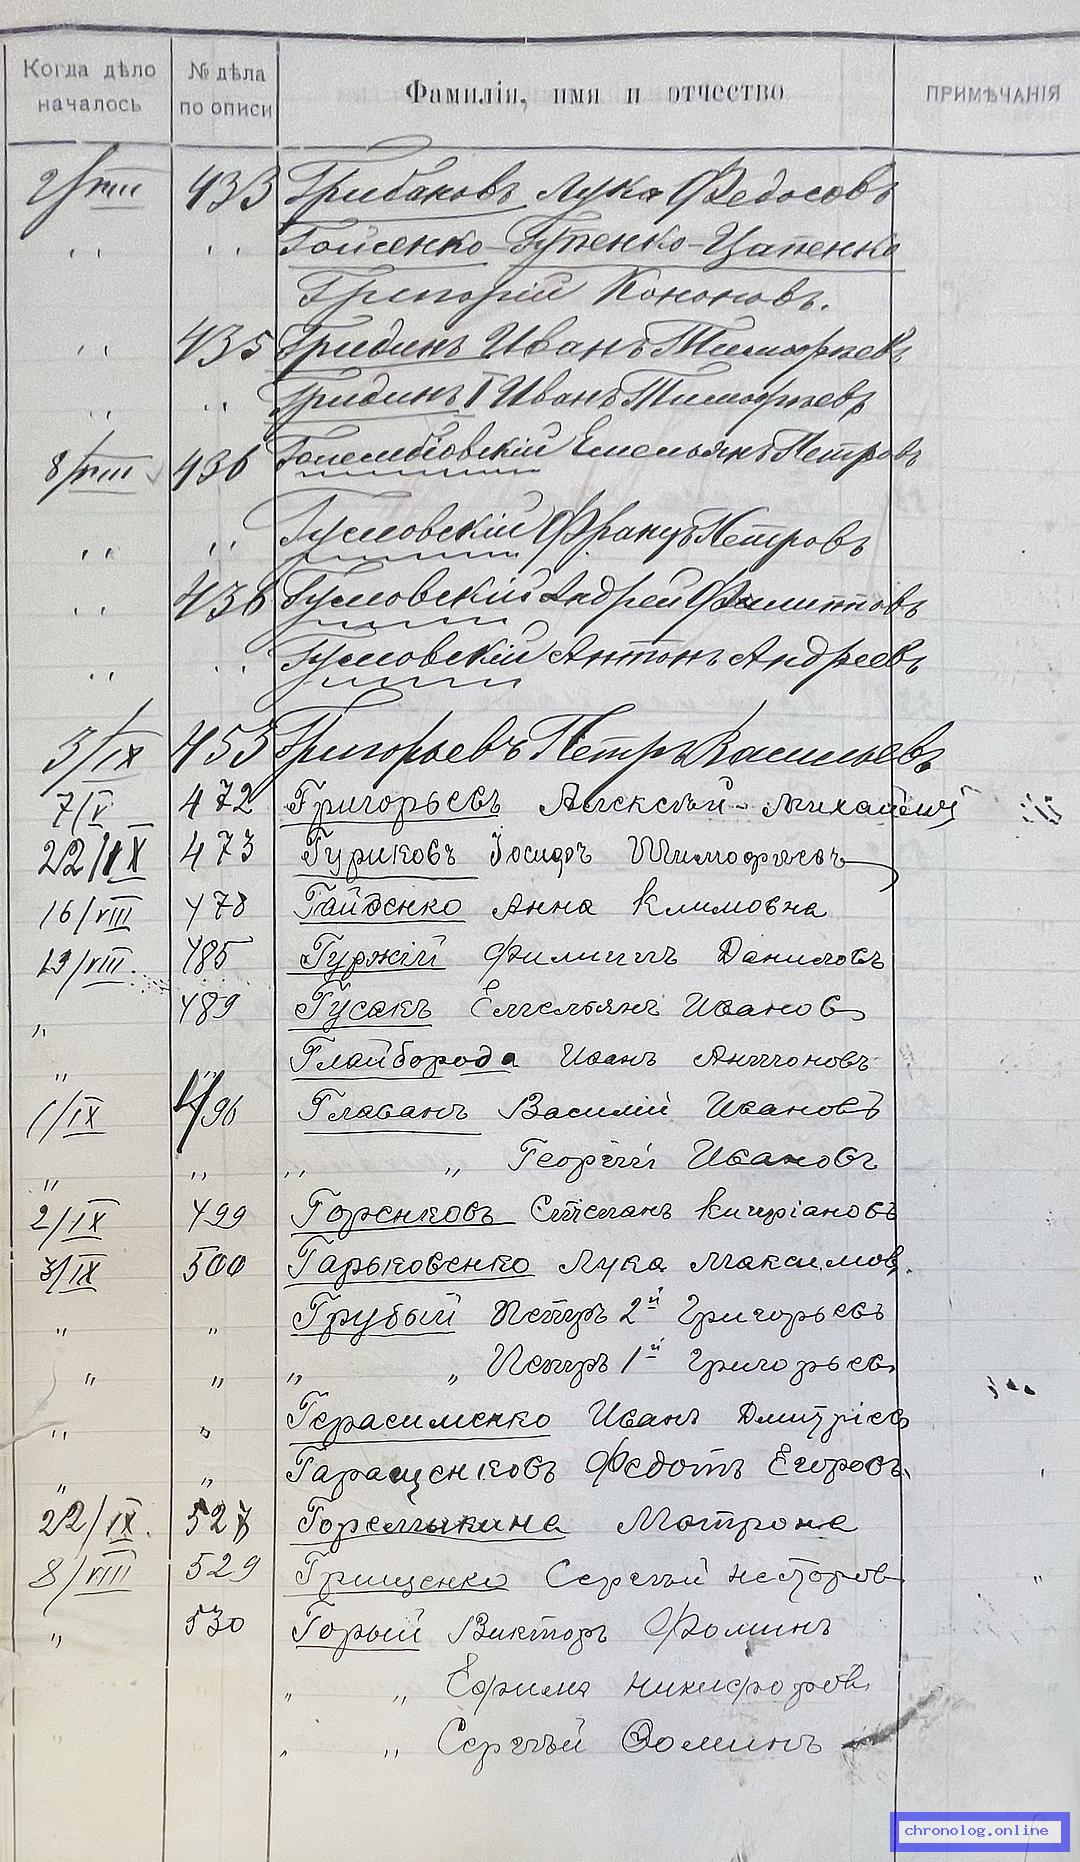 Когда дѣло началось № дѣла по описи Фамилія, имя и отчество ПРИМѢЧАНІЯ
2/VIII 433 Грибаковъ Лука Федосовъ
" " Гойсенко-Гупенко-Цапенко
Григорій Кононовъ.
" 435 Гридинъ Иванъ Тимофѣевъ
" " Гридинъ I Иванъ Тимофѣевъ
8/VIII 436 Голембіовскій Емельянъ Петровъ
" " Гусловскій Францъ Петровъ
" 438 Гусловскій Андрей Филипповъ
" " Гусловскій Антонъ Андреевъ
3/IX 453 Григорьевъ Петръ Васильевъ
7/V 472 Григорьевъ Алексѣй Михайлов
22/IX 473 Гуриковъ Іосифъ Тимофѣевъ
16/VIII 478 Гайденко Анна Климовна
19/VIII. 485 Гуржій Филиппъ Даниловъ
" 489 Гусакъ Емельянъ Иванов
" " Глайборода Иванъ Антоновъ
1/IX 496 Главанъ Василій Ивановъ
" " " " Георгій Ивановъ
2/IX 499 Горенковъ Степанъ Кипріановъ
3/IX 500 Гарьковенко Лука Максимов.
" " Грубый Петръ 2й Григорьевъ
" " " " Петръ 1й Григорьев
" " Герасименко Иванъ Дмитріев
" " Гаращенковъ Федотъ Егоровъ
22/IX. 527 Горемыкина Матрона
8/VIII 529 Грищенко Сергѣй Несторов
" 530 Горый Викторъ Фоминъ
" " Ефимъ Никифоров
" " Сергѣй Фоминъ
chronolog.online